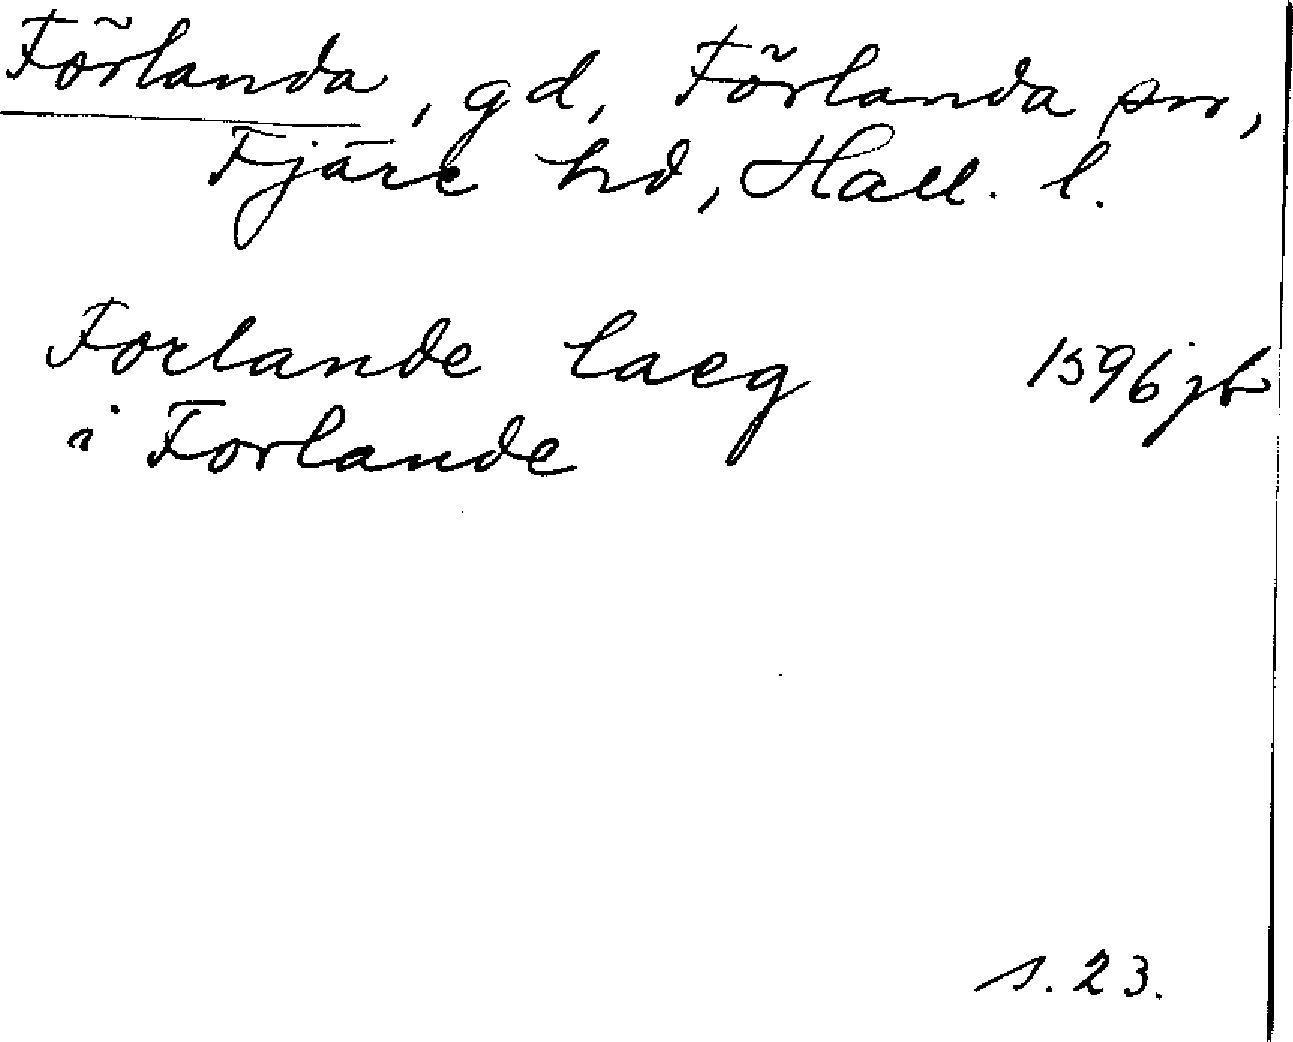 Förlanda, gd, Förlanda sn,
Fjäre hd, Hall. l.
Forlande laeg 1596 jb
i Forlande
s. 23.